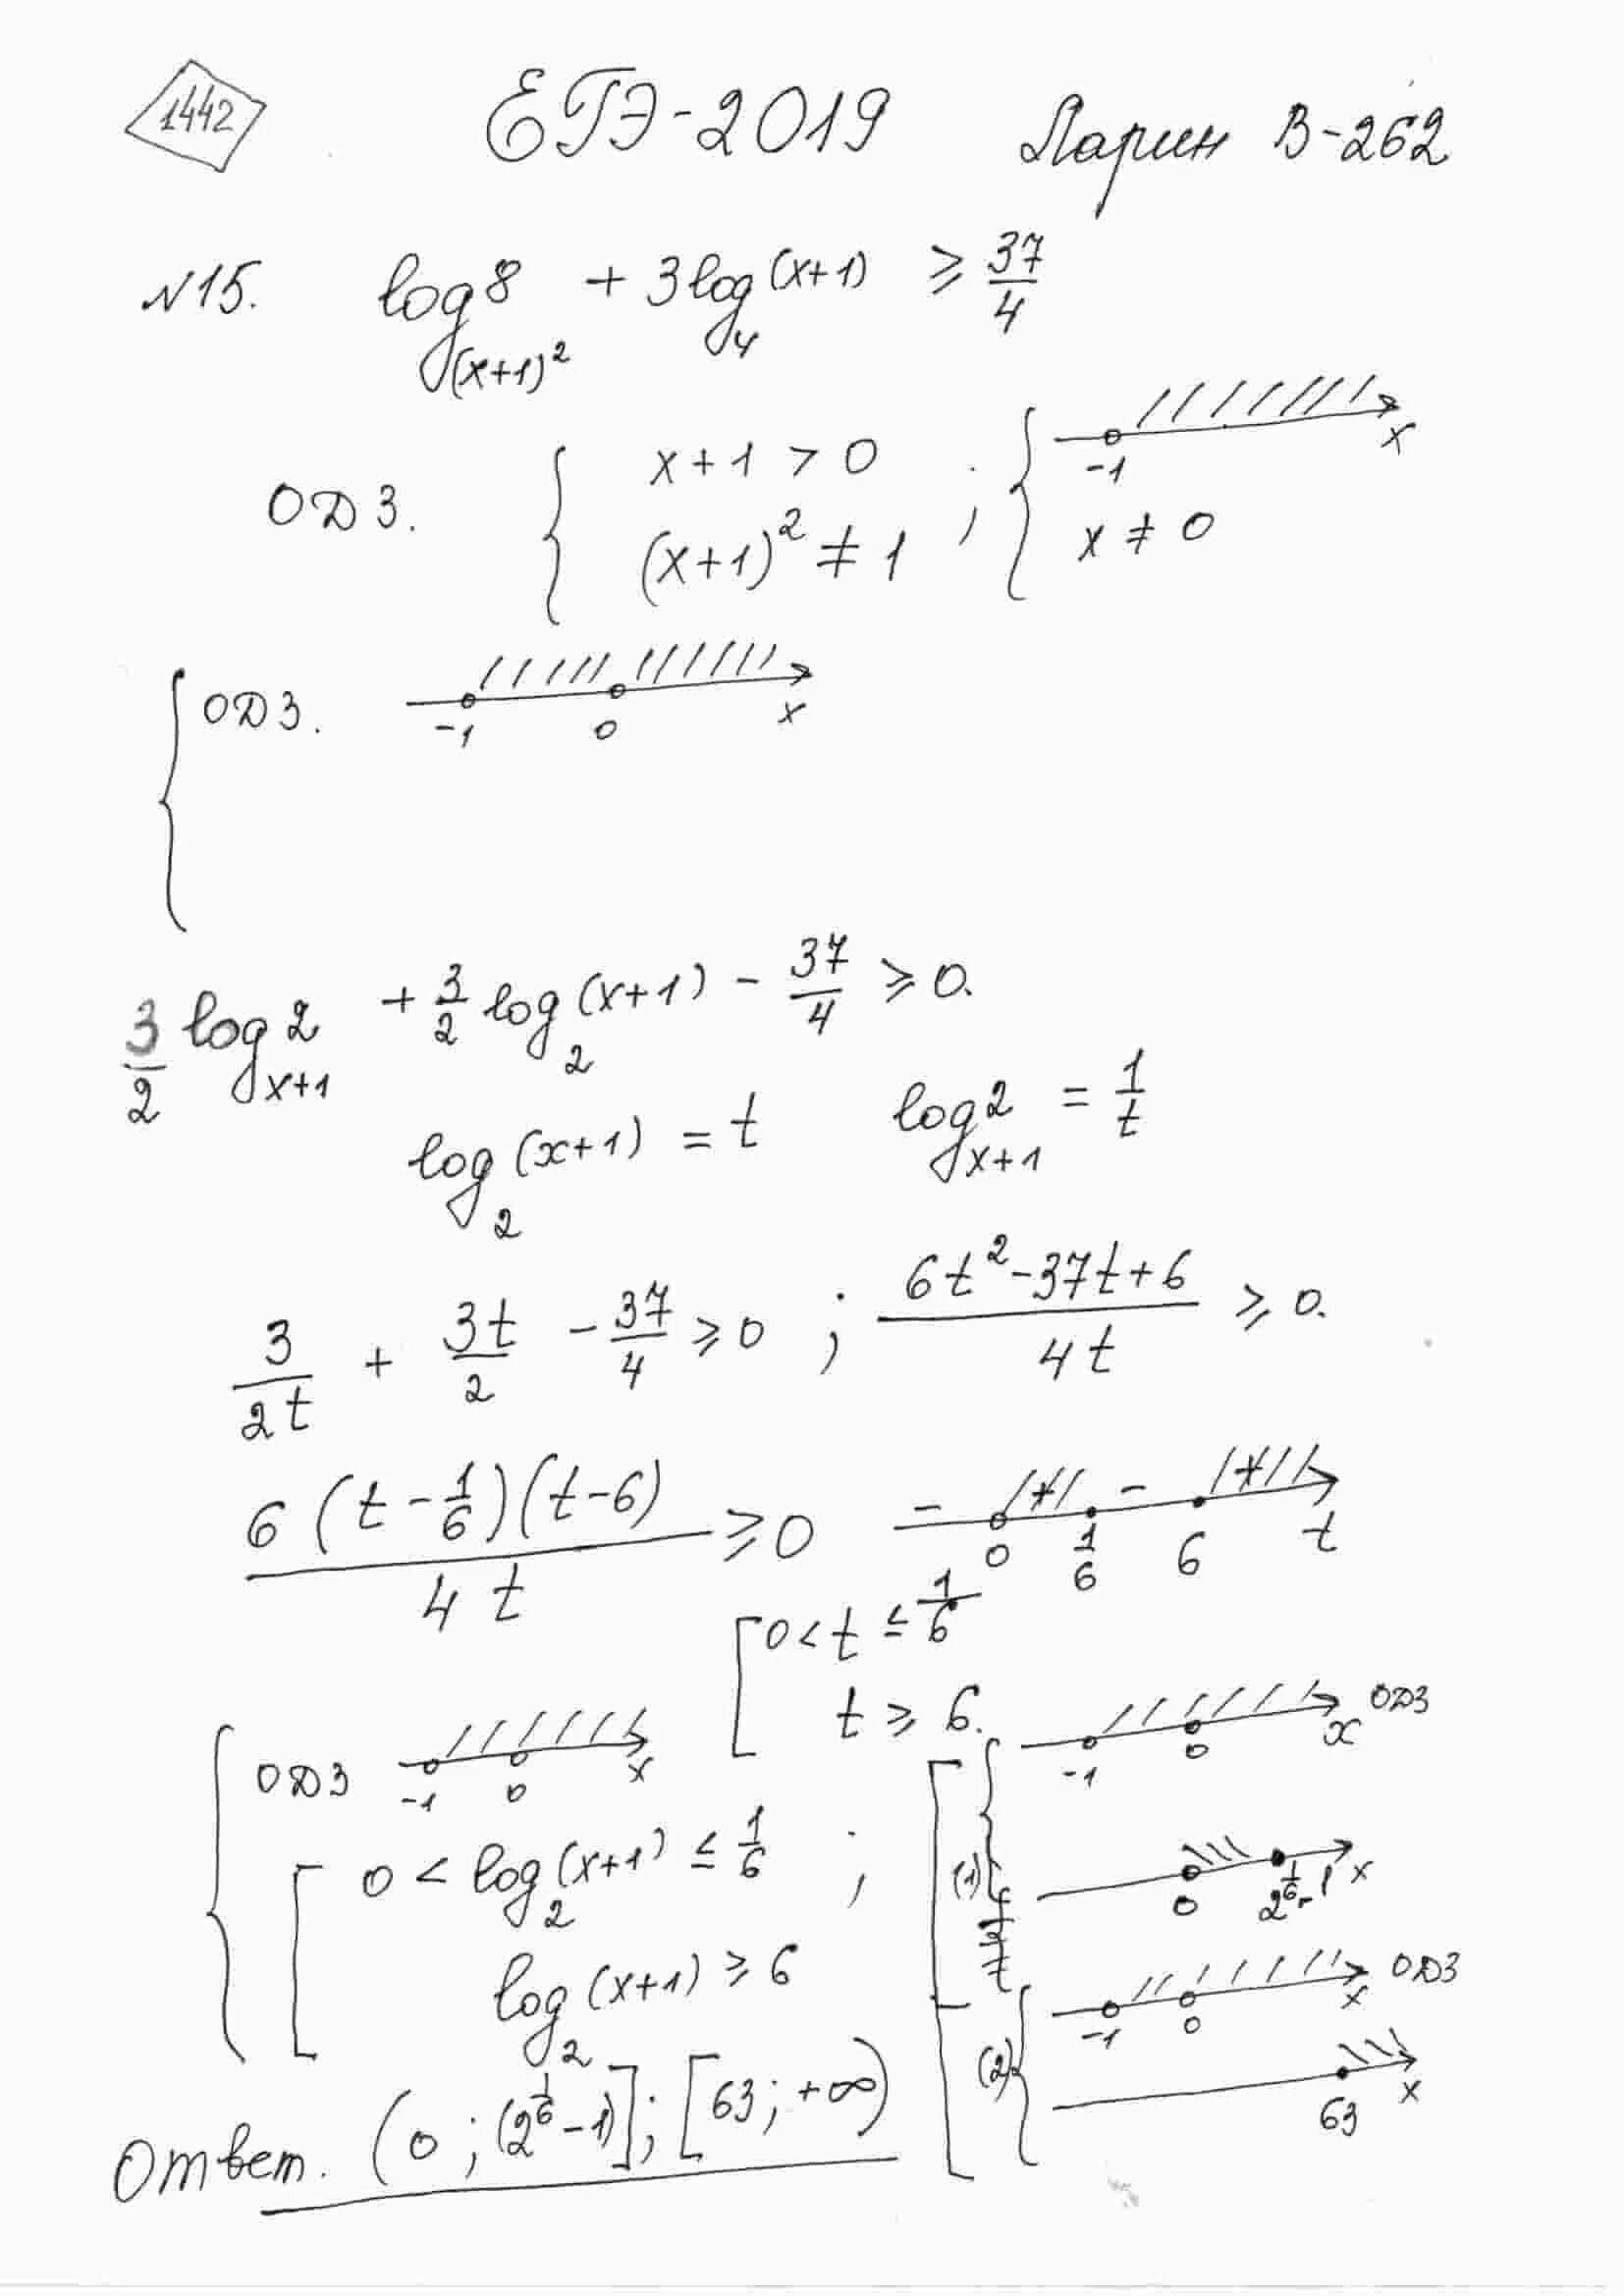 1442 ЕГЭ-2019 Ларин В-262
№15. log_{(x+1)^2} 8 + 3 log_4 (x+1) ≥ 37/4
ОДЗ. { x+1 > 0 ; { -1 x
(x+1)^2 ≠ 1 x ≠ 0
{ ОДЗ. -1 0 x
3/2 log_{x+1} 2 + 3/2 log_2 (x+1) - 37/4 ≥ 0.
log_2 (x+1) = t log_{x+1} 2 = 1/t
3/(2t) + 3t/2 - 37/4 ≥ 0 ; (6t^2-37t+6)/(4t) ≥ 0.
6(t-1/6)(t-6)/(4t) ≥ 0 - + - + 0 1/6 6 t
[ 0 < t ≤ 1/6
t ≥ 6.
{ ОДЗ -1 0 x [ { -1 0 x ОДЗ
[ 0 < log_2 (x+1) ≤ 1/6 ; (1) 0 2^{1/6}-1 x
log_2 (x+1) ≥ 6 { -1 0 x ОДЗ
(2) 63 x
Ответ. (0 ; (2^{1/6}-1)] ; [63 ; +∞)